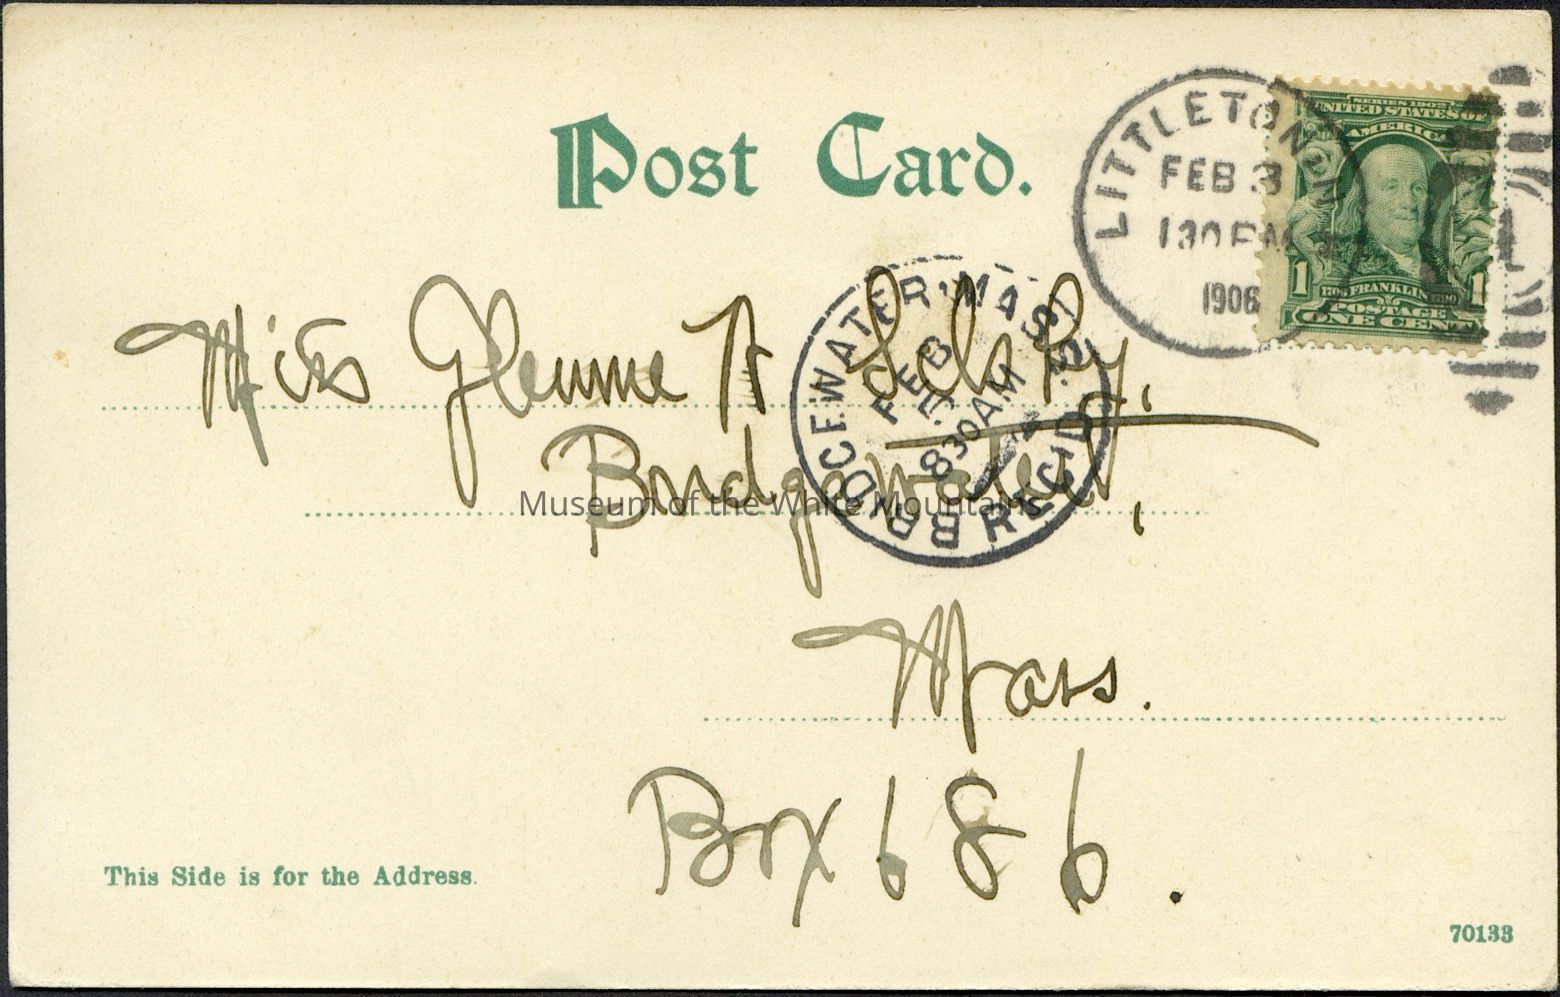 Post Card.
LITTLETON N.H.
FEB 3
130 PM
1906
SERIES 1902
UNITED STATES OF
AMERICA
1 FRANKLIN 1
POSTAGE
ONE CENT
BRIDGEWATER MASS.
FEB
830 AM
REC'D.
Miss Glennie A
Bridgewater,
Museum of the White Mountains
Mass.
Box 686.
This Side is for the Address.
70133